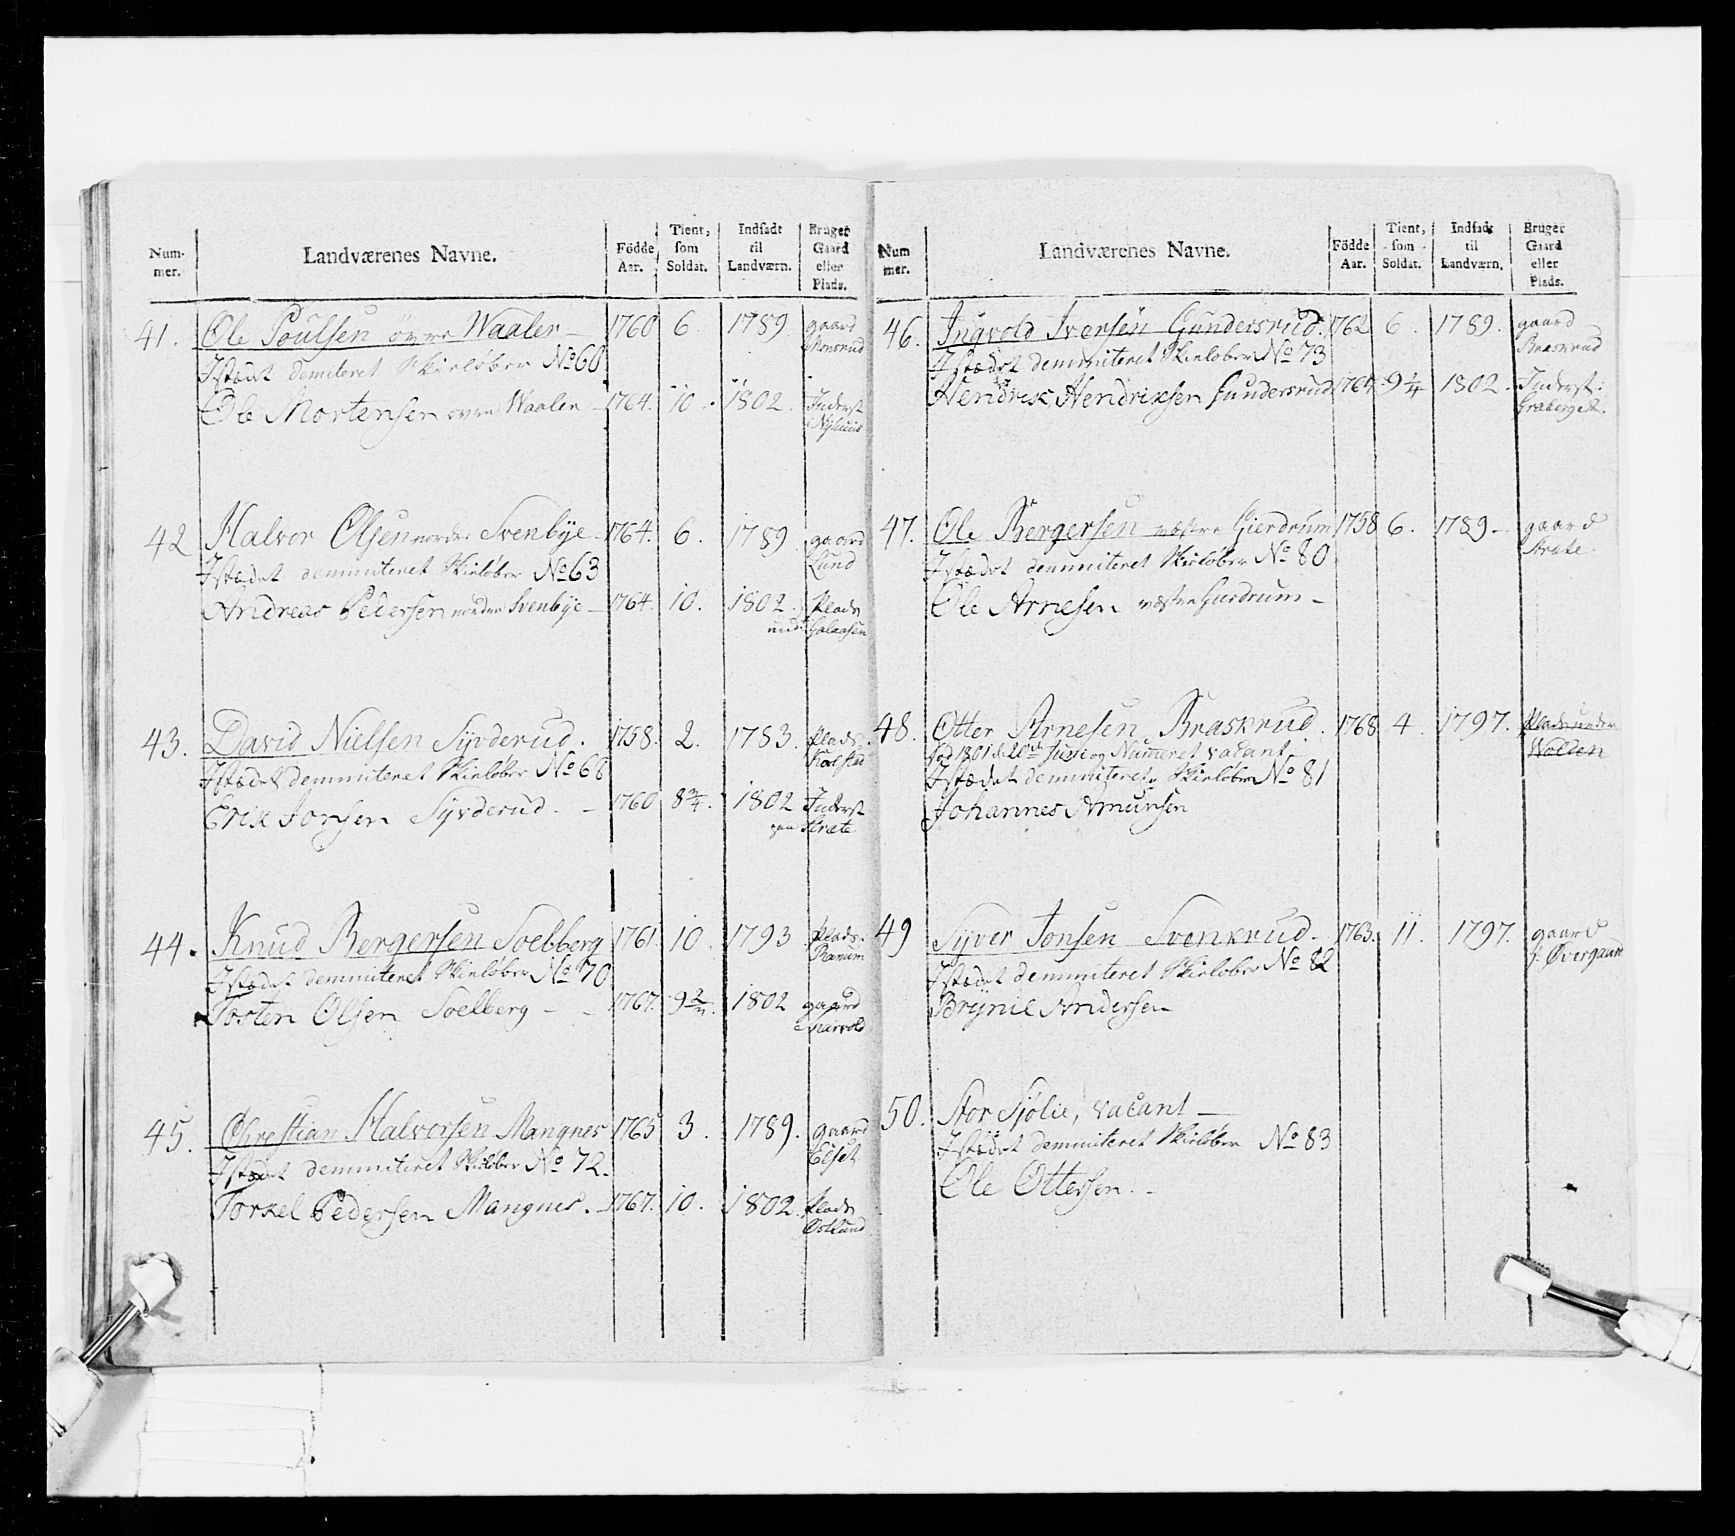 Num-
mer.
Landværenes Navne.
Födde
Aar.
Tient,
som
Soldat.
Indsadt
til
Landværn.
Bruger
Gaard
eller
Plads.
41. Ole Poulsen övre Waaler 1760 6. 1789 gaard
Istædet demiteret Skielöber No 60
Ole Mortensen övre Waaler 1764. 10. 1802. Inderst
42 Halvor Olsen nordre Svenbÿe 1764. 6. 1789 gaard
Lund
Istædet demmiteret Skielöber No 63
Andreas Pedersen nordre Svenbÿe 1764. 10. 1802. Plads
43. David Nielsen Sÿvderud. 1758. 2. 1783. Plads
Istædet demmiteret Skielöber No 68
Erik Jonsen Sÿvderud. 1760 8¾. 1802 Inderst
44. Knud Bergersen Soelberg 1761 10. 1793 Plads
Ranum
Istædet demmiteret Skielöber No 70
Tosten Olsen Soelberg 1767. 1802 gaard
45. Christian Halvorsen Mangnes 1765 3. 1789. gaard
Istædet demmiteret Skielöber No 72.
Torkel Pedersen Mangnes. 1767. 10. 1802. Plads
Num
mer.
Landværenes Navne.
Födde
Aar.
Tient,
som
Soldat.
Indsadt
til
Landværn.
Bruger
Gaard
eller
Plads.
46. Ingvold Iversen Gundersrud. 1762 6. 1789. gaard
Braskrud
Istædet demmiteret Skielöber No 73
Hendrik Hendriksen Gundersrud 1767. 9¼ 1802. Inderst:
47. Ole Bergersen væstre Gierdrum 1758 6. 1789 gaard
Istædet demmiteret Skielöber No 80
Ole Arnesen væstre Gierdrum
48. Otter Arnesen Braskrud. 1768 4. 1797. Plads under
Wolden
Nummeret vacant
Istædet demmiteret Skielöber No 81
Johannes Amunsen
49 Sÿver Jonsen Svenkrud. 1763. 11. 1797. gaard
Övergaard
Istædet demmiteret Skielöber No 82
Brÿnil Andersen
50. Stor Sjölie, vacant
Istædet demmiteret Skielöber No 83
Ole Ottersen.